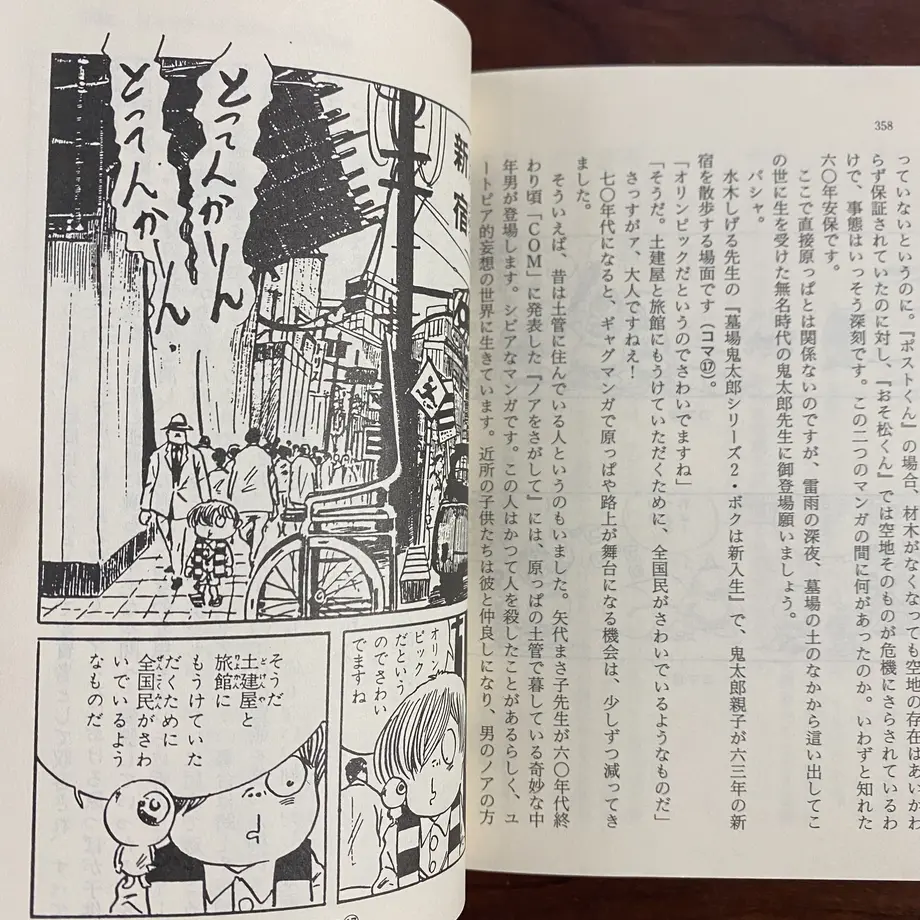 358
っていないというのに。『ポストくん』の場合、材木がなくなっても空地の存在はあいかわ
らず保証されていたのに対し、『おそ松くん』では空地そのものが危機にさらされているわ
けで、事態はいっそう深刻です。この二つのマンガの間に何があったのか。いわずと知れた
六〇年安保です。
ここで直接原っぱとは関係ないのですが、雷雨の深夜、墓場の土のなかから這い出してこ
の世に生を受けた無名時代の鬼太郎先生に御登場願いましょう。
パシャ。
水木しげる先生の『墓場鬼太郎シリーズ2・ボクは新入生』で、鬼太郎親子が六三年の新
宿を散歩する場面です（コマ⑰）。
「オリンピックだというのでさわいでますね」
「そうだ。土建屋と旅館にもうけていただくために、全国民がさわいでいるようなものだ」
さっすがァ、大人ですねえ！
七〇年代になると、ギャグマンガで原っぱや路上が舞台になる機会は、少しずつ減ってき
ました。
そういえば、昔は土管に住んでいる人というのもいました。矢代まさ子先生が六〇年代終
わり頃「COM」に発表した『ノアをさがして』には、原っぱの土管で暮している奇妙な中
年男が登場します。シビアなマンガです。この人はかつて人を殺したことがあるらしく、ユ
ートピア的妄想の世界に生きています。近所の子供たちは彼と仲良しになり、男のノアの方
新宿
とってんかーん
とってんかーん
オリン
ピック
だという
のでさわい
でますね
そうだ
土建屋と
旅館に
もうけていた
だくために
全国民がさわ
いでいるよう
なものだ
⑰